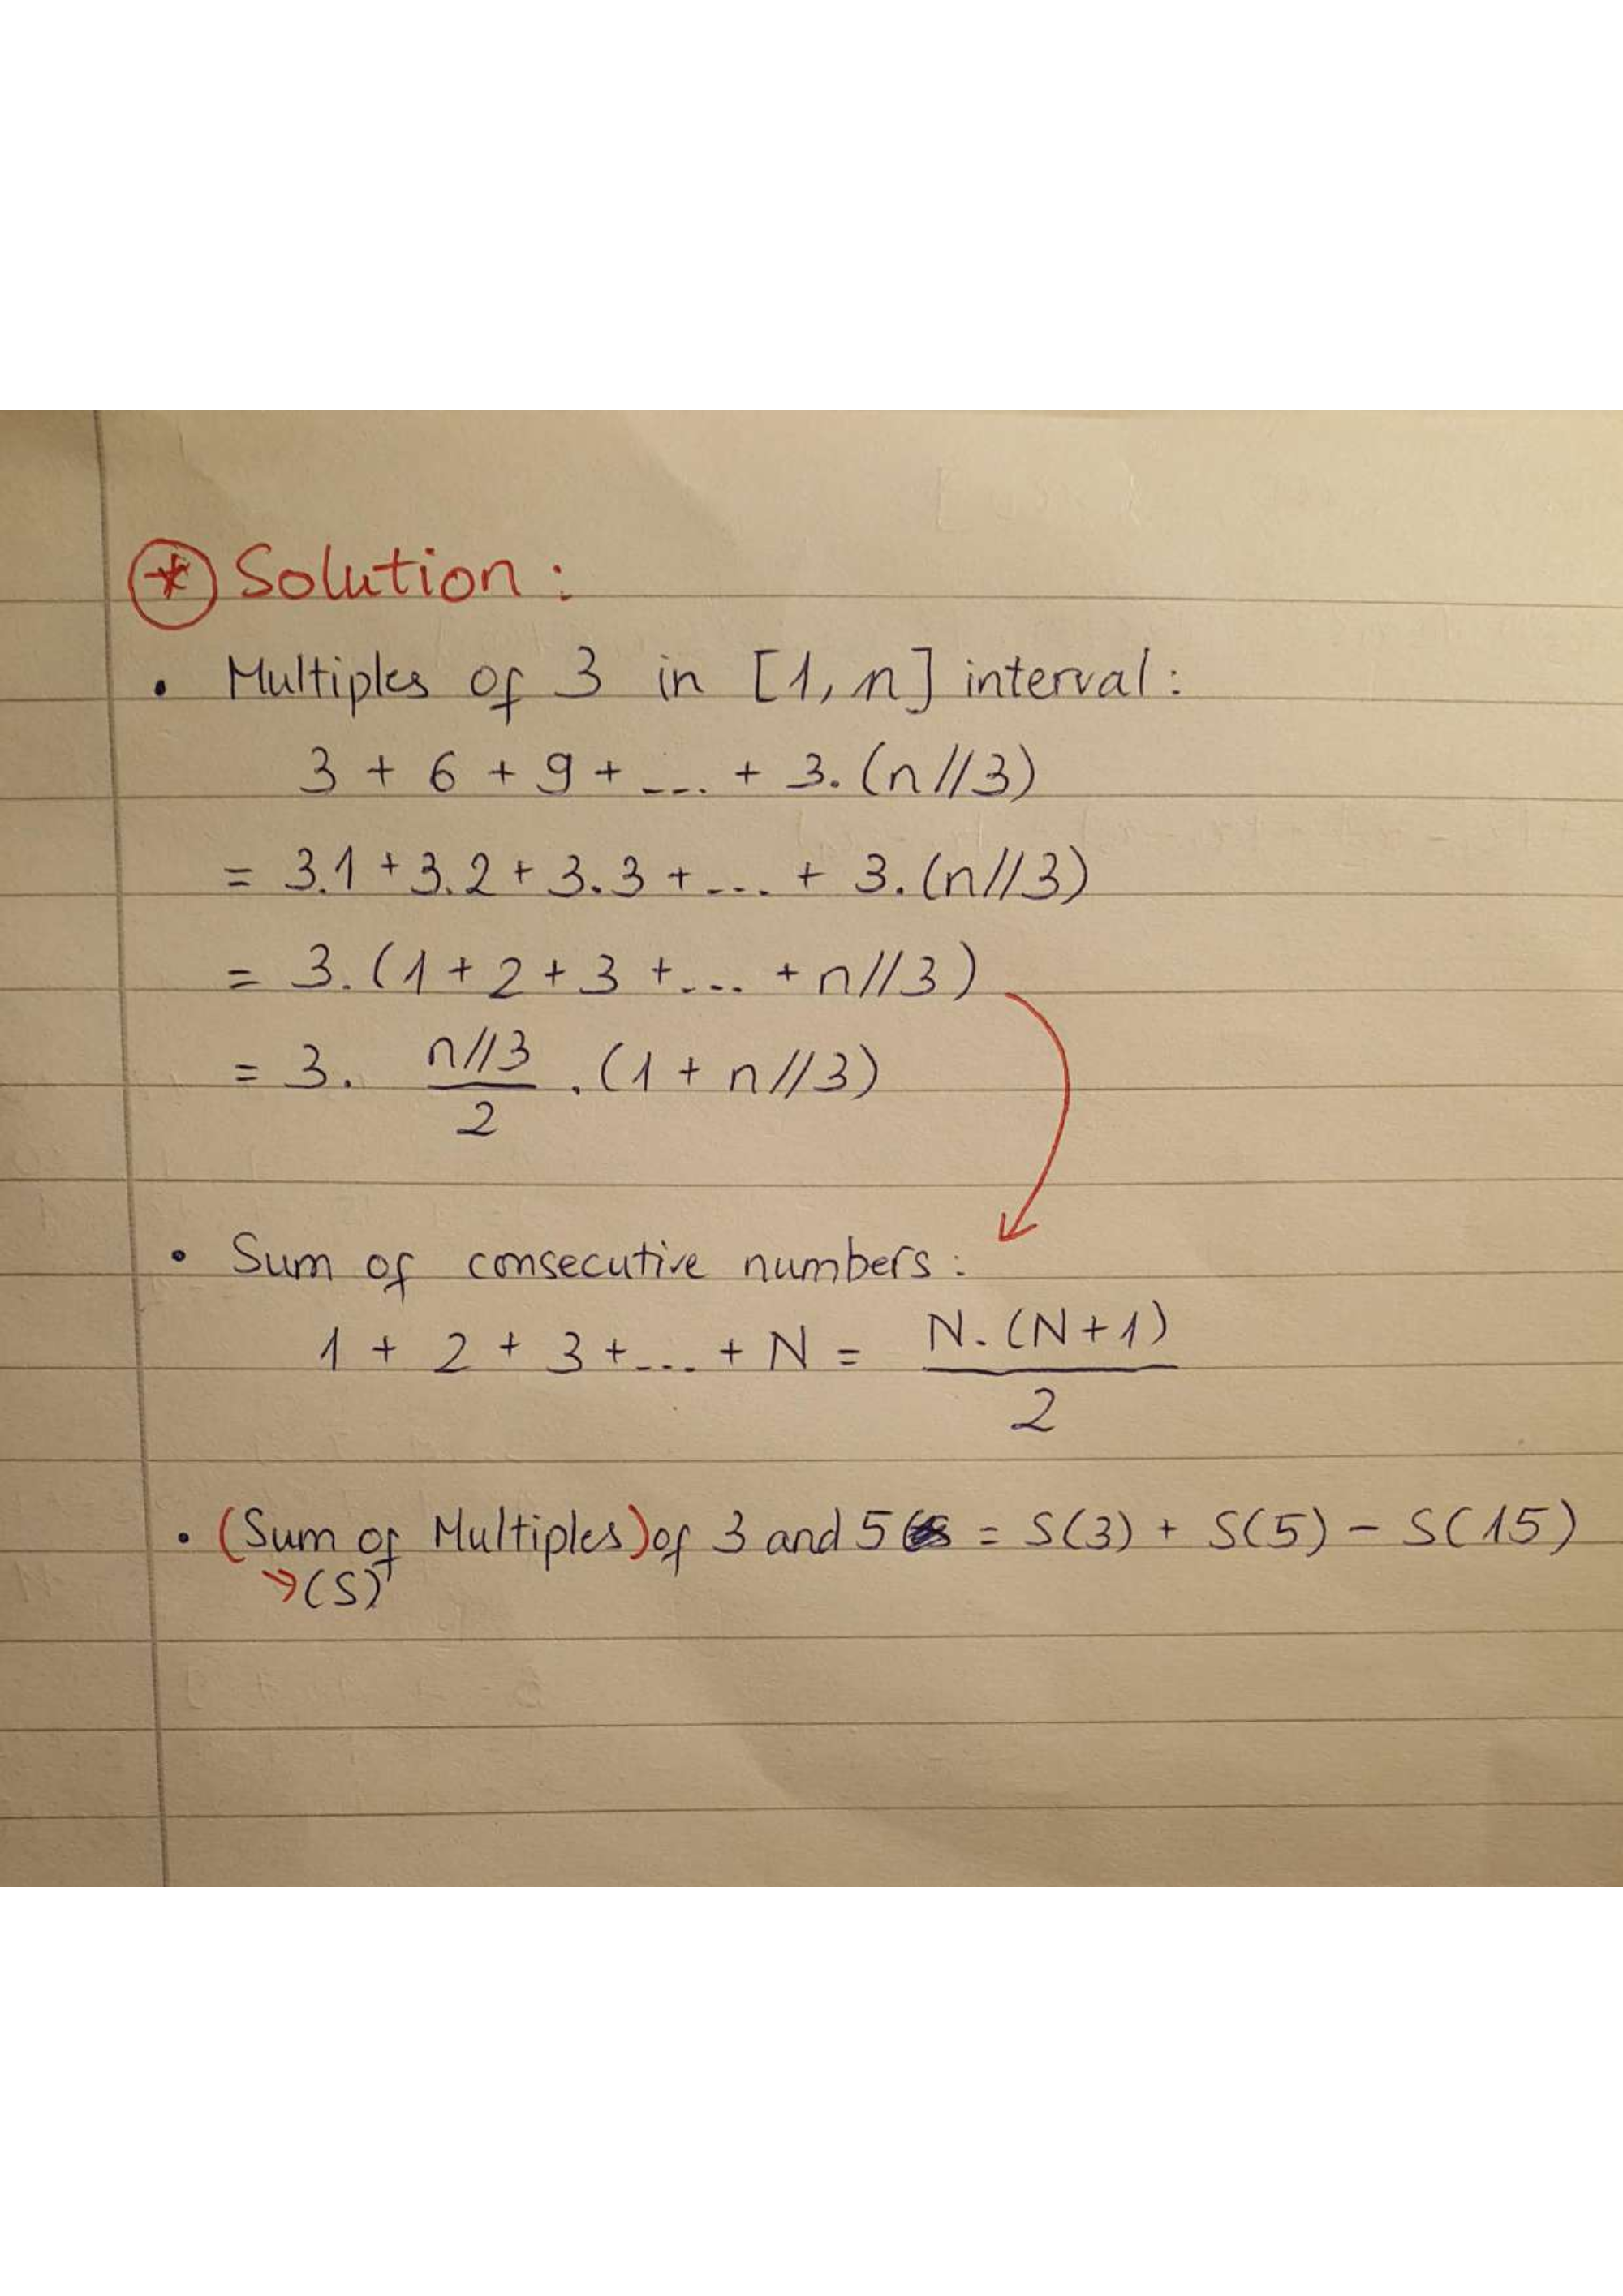 * Solution:
• Multiples of 3 in [1, n] interval:
3 + 6 + 9 + .... + 3.(n//3)
= 3.1 + 3.2 + 3.3 + .... + 3.(n//3)
= 3.(1 + 2 + 3 + .... + n//3)
= 3. n//3 / 2 .(1 + n//3)
• Sum of consecutive numbers:
1 + 2 + 3 + .... + N = N.(N+1) / 2
• (Sum of Multiples) of 3 and 5 = S(3) + S(5) - S(15)
→ (S)